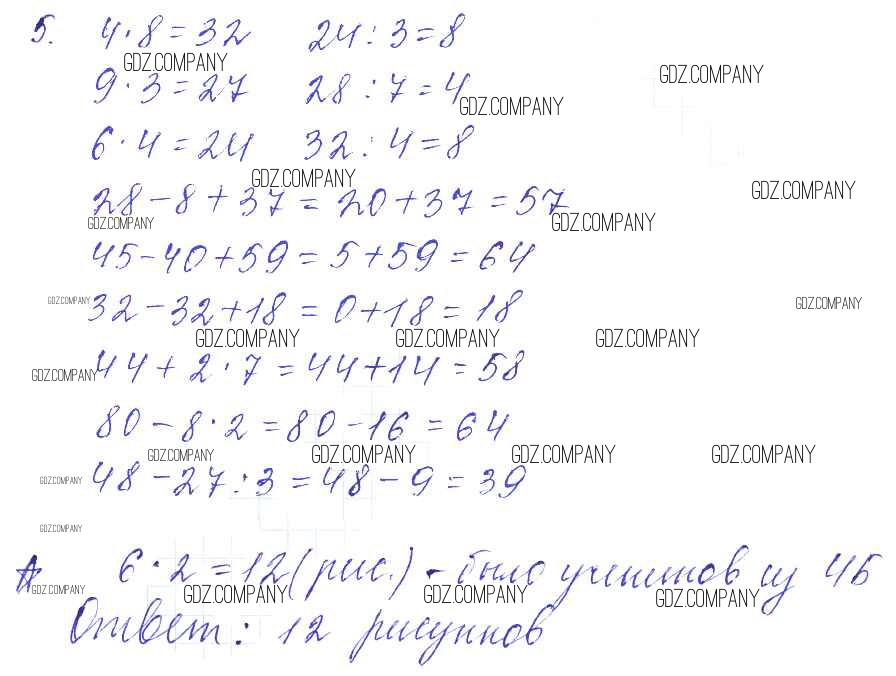 5. 4·8=32 24:3=8
GDZ.COMPANY
9·3=27 28:7=4 GDZ.COMPANY GDZ.COMPANY
6·4=24 32:4=8
GDZ.COMPANY GDZ.COMPANY
28-8+37=20+37=57
GDZ.COMPANY GDZ.COMPANY
45-40+59=5+59=64
GDZ.COMPANY 32-32+18=0+18=18 GDZ.COMPANY
GDZ.COMPANY GDZ.COMPANY GDZ.COMPANY
GDZ.COMPANY 44+2·7=44+14=58
80-8·2=80-16=64
GDZ.COMPANY GDZ.COMPANY GDZ.COMPANY GDZ.COMPANY
GDZ.COMPANY 48-27:3=48-9=39
GDZ.COMPANY
6·2=12(рис.)-было учеников из 4Б
GDZ.COMPANY GDZ.COMPANY GDZ.COMPANY GDZ.COMPANY
Ответ: 12 рисунков